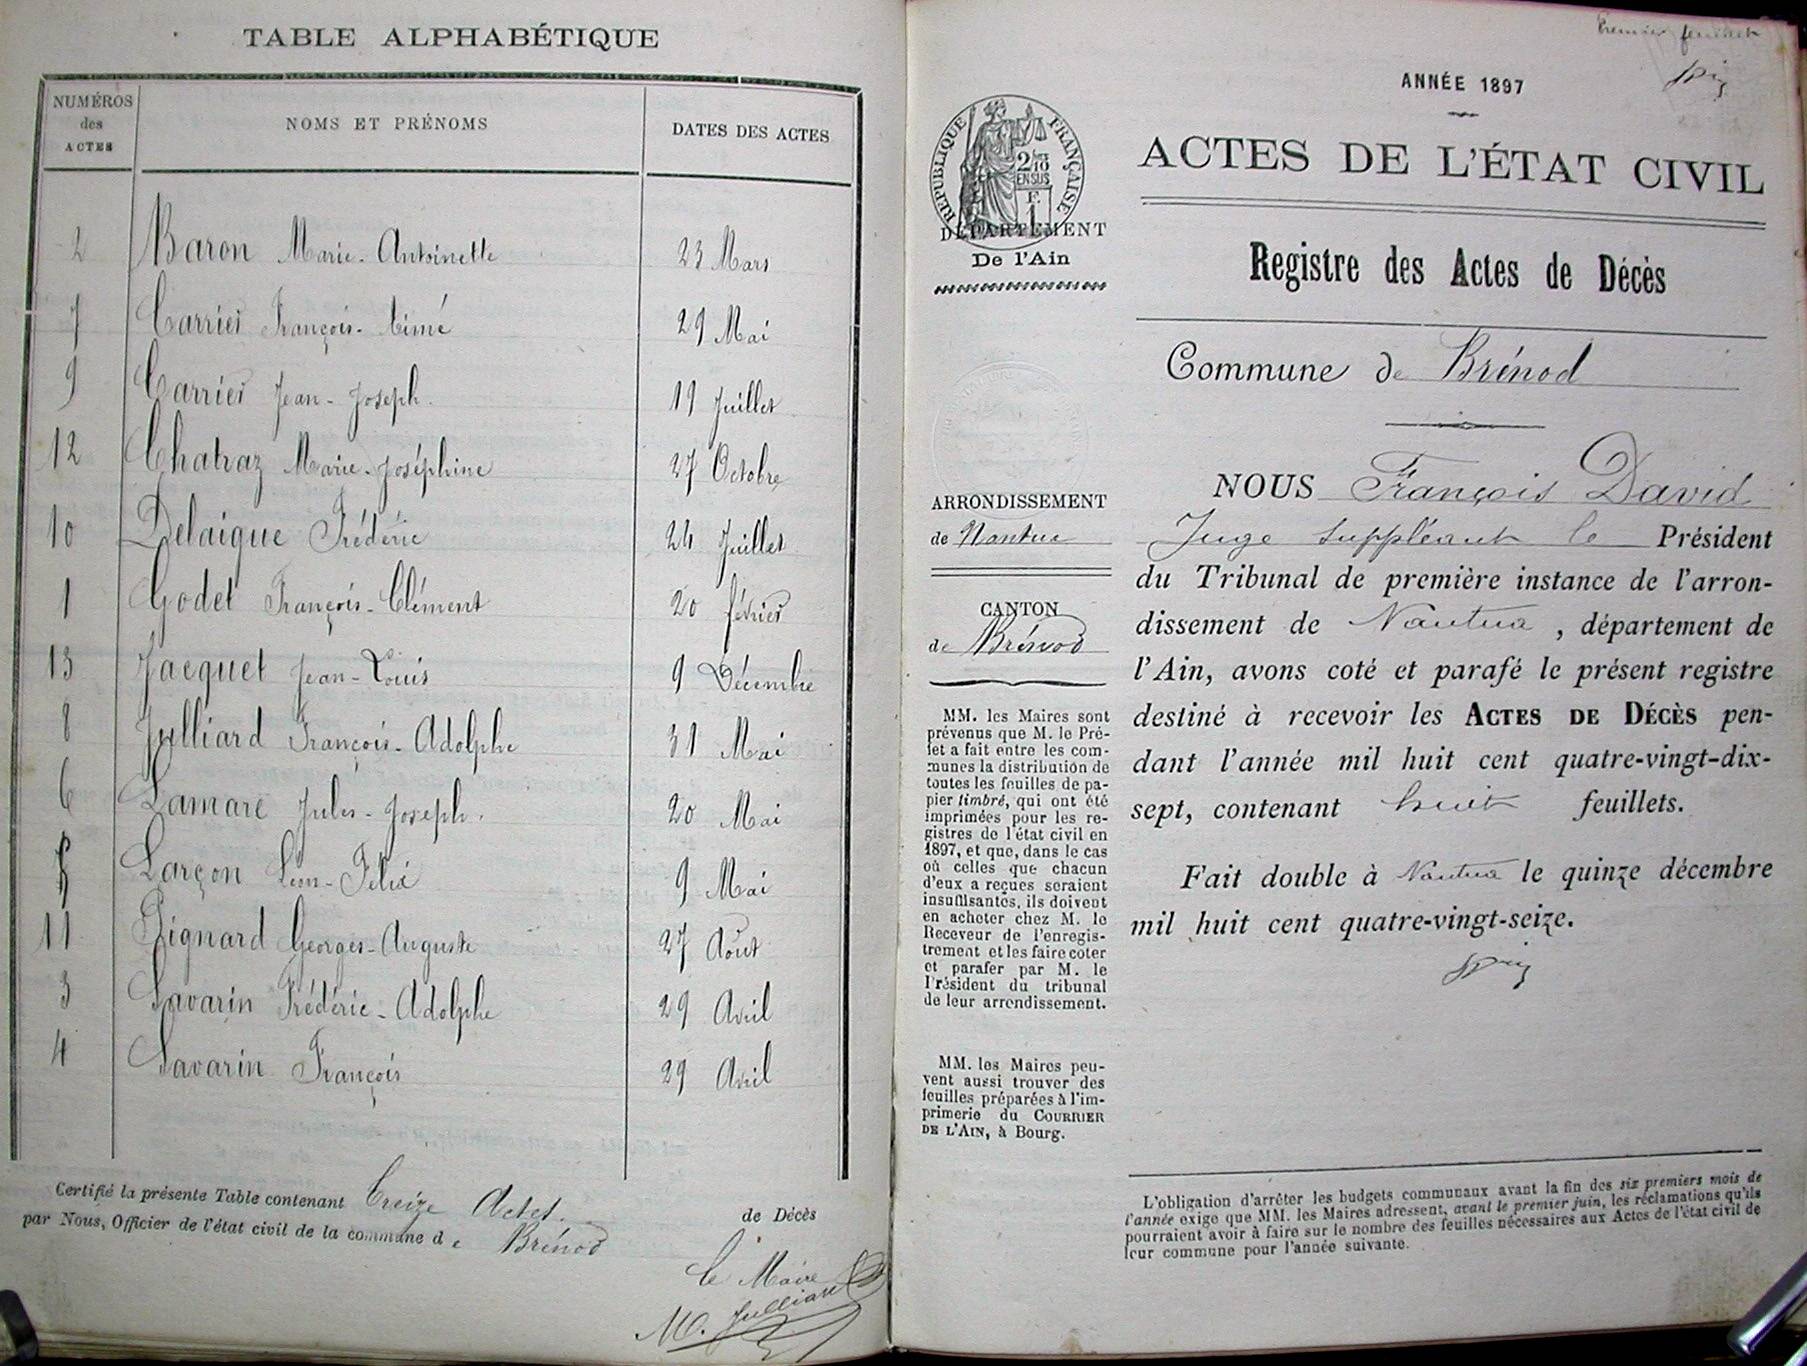 TABLE ALPHABÉTIQUE
NUMÉROS des ACTES
NOMS ET PRÉNOMS
DATES DES ACTES
2 Baron Marie-Antoinette 23 Mars
7 Carrier François-Aimé 29 Mai
9 Carrier Jean-Joseph 19 Juillet
12 Chatraz Marie-Joséphine 27 Octobre
10 Delaigue Frédéric 24 Juillet
1 Godet François-Clément 20 février
13 Jacquet Jean-Louis 9 Décembre
8 Julliard François-Adolphe 31 Mai
6 Lamare Jules-Joseph. 20 Mai
5 Larçon Léon-Félix 9 Mai
11 Pignard Georges-Auguste 27 Août
3 Savarin Frédéric-Adolphe 29 Avril
4 Savarin François 29 Avril
Certifié la présente Table contenant Treize Actes. de Décès
par Nous, Officier de l'état civil de la commune de Brénod
Le Maire
M. Julliard
Premier feuillet
ANNÉE 1897
RÉPUBLIQUE FRANÇAISE
2/10
EN SUS
F.
1
ACTES DE L'ÉTAT CIVIL
DÉPARTEMENT
De l'Ain
Registre des Actes de Décès
Commune de Brénod
ARRONDISSEMENT
de Nantua
CANTON
de Brénod
MM. les Maires sont
prévenus que M. le Pré-
fet a fait entre les com-
munes la distribution de
toutes les feuilles de pa-
pier timbré, qui ont été
imprimées pour les re-
gistres de l'état civil en
1897, et que, dans le cas
où celles que chacun
d'eux a reçues seraient
insuffisantes, ils doivent
en acheter chez M. le
Receveur de l'enregis-
trement et les faire coter
et parafer par M. le
Président du tribunal
de leur arrondissement.
MM. les Maires peu-
vent aussi trouver des
feuilles préparées à l'im-
primerie du COURRIER
DE L'AIN, à Bourg.
NOUS François David
Juge suppléant le Président
du Tribunal de première instance de l'arron-
dissement de Nantua, département de
l'Ain, avons coté et parafé le présent registre
destiné à recevoir les ACTES DE DÉCÈS pen-
dant l'année mil huit cent quatre-vingt-dix-
sept, contenant huit feuillets.
Fait double à Nantua le quinze décembre
mil huit cent quatre-vingt-seize.
L'obligation d'arrêter les budgets communaux avant la fin des six premiers mois de
l'année exige que MM. les Maires adressent, avant le premier juin, les réclamations qu'ils
pourraient avoir à faire sur le nombre des feuilles nécessaires aux Actes de l'état civil de
leur commune pour l'année suivante.